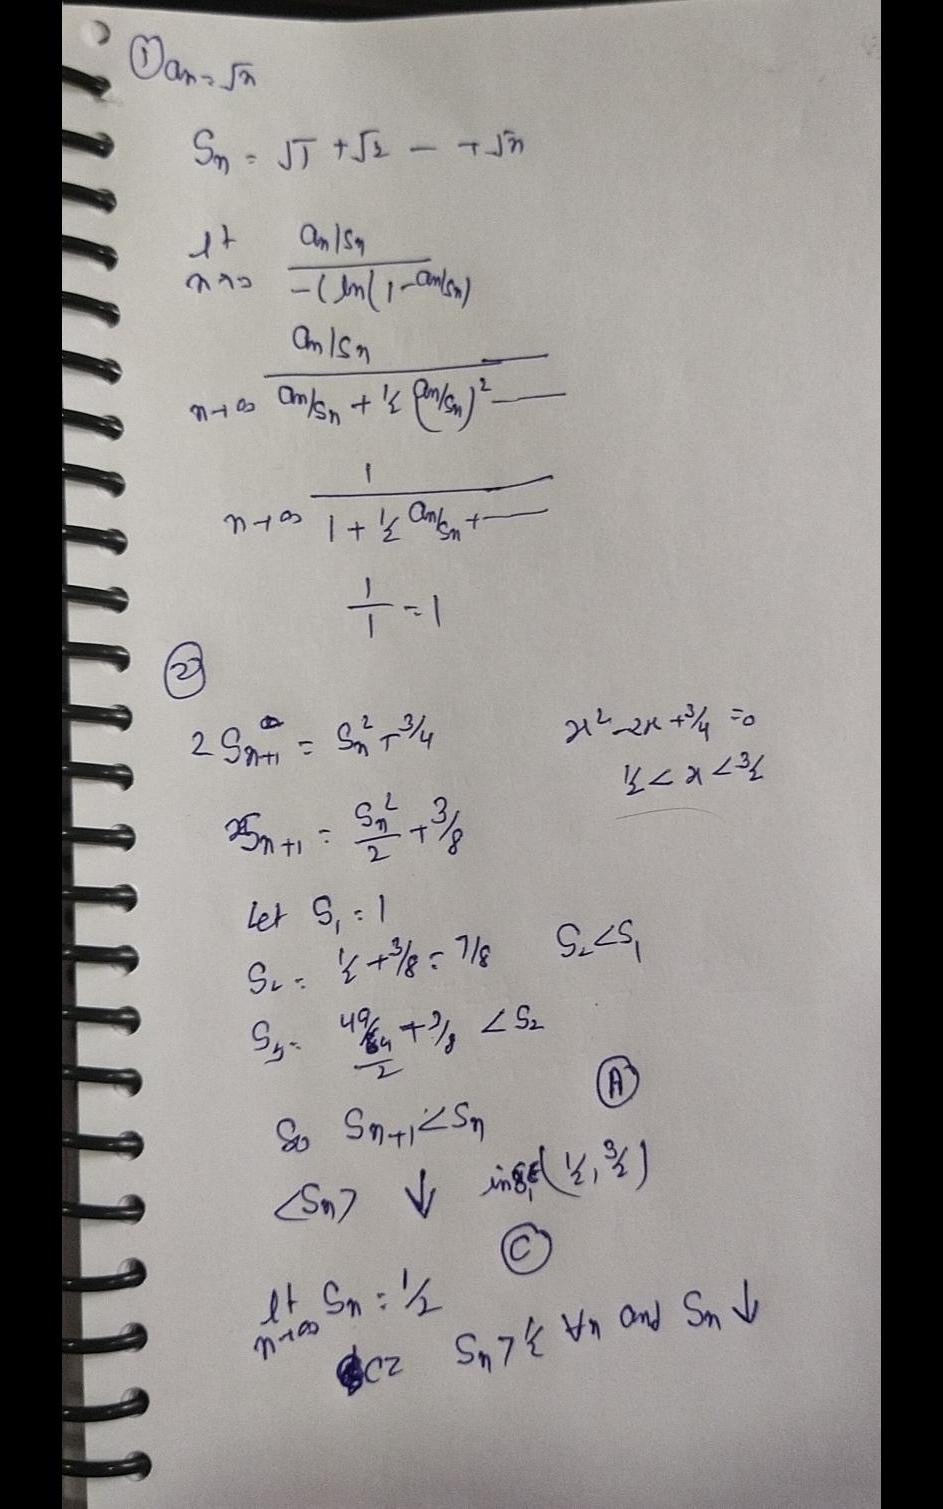 ① an = √n
Sn = √1 + √2 — + √n
lt n→∞ an/Sn / -(ln(1-an/Sn)
n→∞ an/Sn / an/Sn + 1/2 (an/Sn)² ——
n→∞ 1 / 1 + 1/2 an/Sn + ——
1/1 = 1
②
2Sn+1 = Sn² + 3/4 x² - 2x + 3/4 = 0
1/2 < x < 3/2
Sn+1 = Sn²/2 + 3/8
Let S1 = 1
S2 = 1/2 + 3/8 = 7/8 S2 < S1
S3 = 49/64/2 + 3/8 < S2
Ⓐ
So Sn+1 < Sn
<Sn> ↓ in S1∈(1/2, 3/2)
Ⓒ
lt n→∞ Sn = 1/2
Sn > 1/2 ∀n and Sn ↓